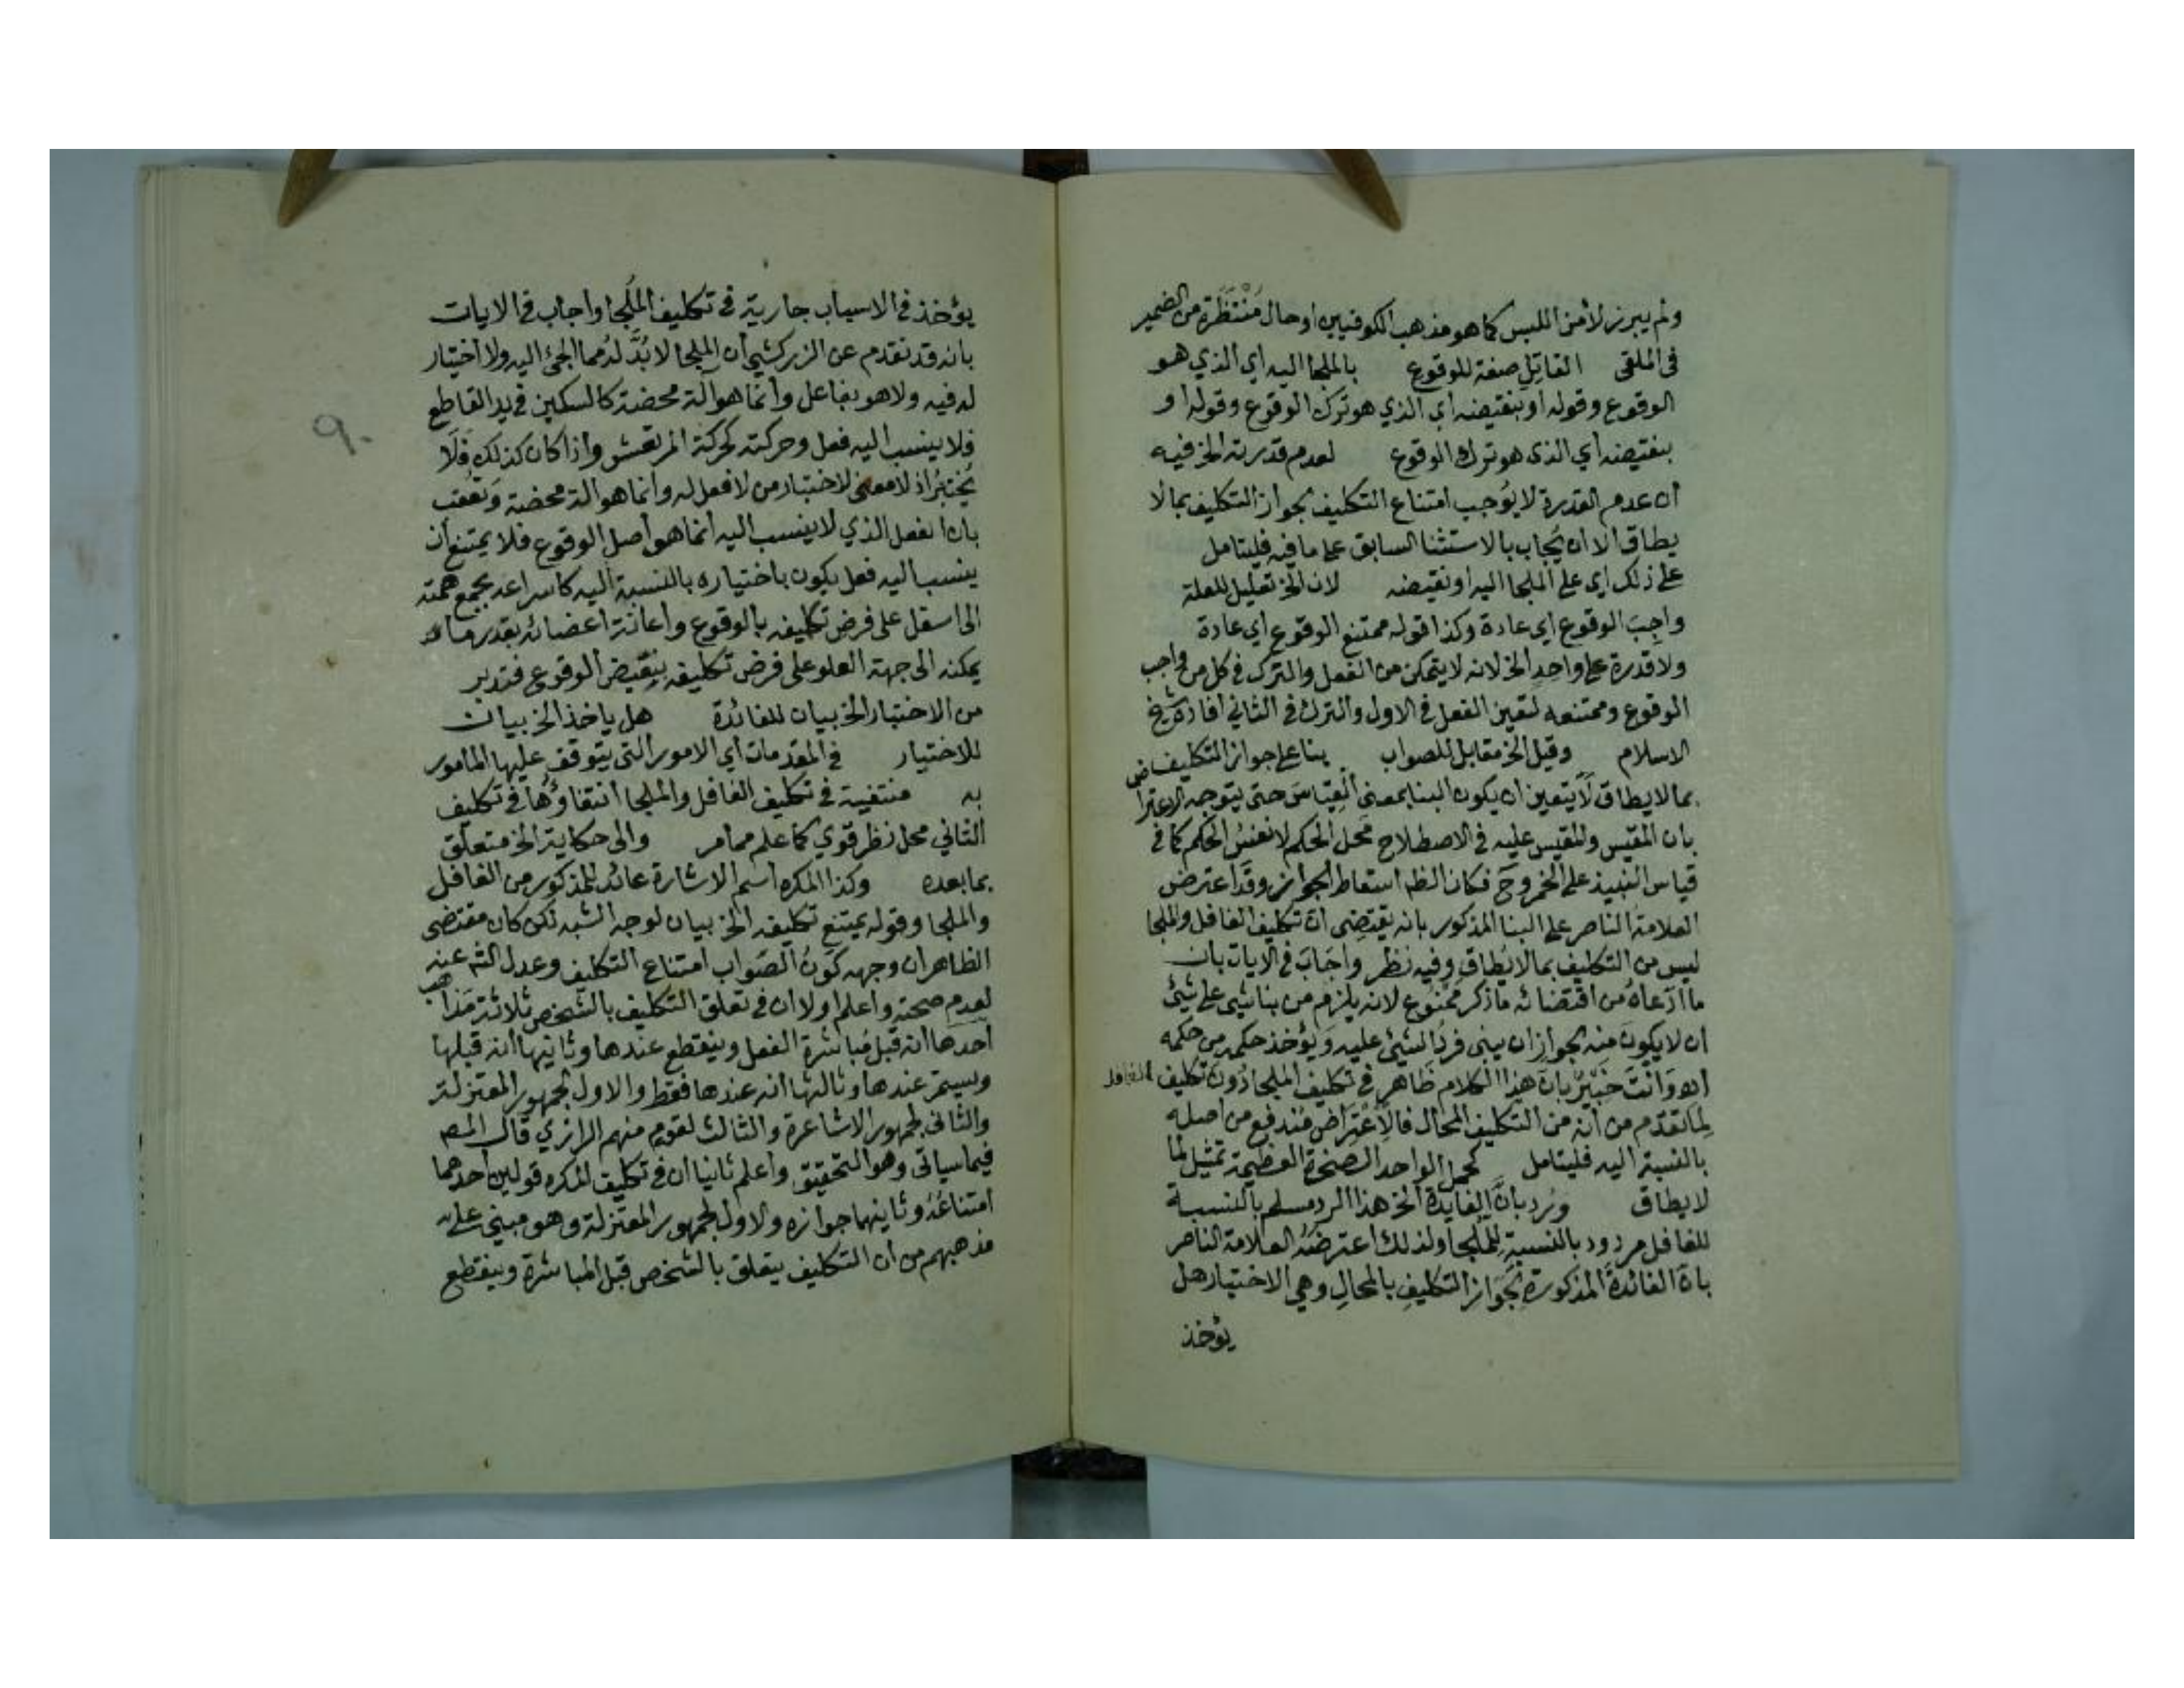 ولم يبرز لأمن اللبس كما هو مذهب الكوفيين او حال مُنْتَظَرَة من الضمير
فى الملقى القاتِل صفة للوقوع بالملجا اليه اي الذي هو
الوقوع وقوله او بنقيضه اي الذي هو ترك الوقوع وقوله او
بنقيضه اي الذى هو ترك الوقوع لعدم قدرته الخ فيه
أن عدم القدرة لا يوجب امتناع التكليف بجواز التكليف بما لا
يطاق الا ان يُجاب بالاستثنا السابق على ما فيه فليتامل
على ذلك اى على الملجا اليه او نقيضه لان الخ تعليل للعلة
واجِبَ الوقوع اي عادة وكذا قوله ممتنع الوقوع اي عادة
ولا قدرة على واحد الخ لانه لا يتمكن من الفعل والترك في كل من واجب
الوقوع وممتنعه لتعين الفعل في الاول والترك في الثاني افاده شيخ
الاسلام وقيل الخ مقابل للصواب بنا على جواز التكليف
بما لا يطاق لا يتعين ان يكون البنا بمعنى القِيَاسَ حتى يتوجه الاعتراض
بان المقيس والمقيس عليه في الاصطلاح محل الحكم لا نفسُ الحكم كما في
قياس النبيذ على الخمر وح فكان الظ اسقاط الجواز وقد اعترض
العلامة الناصر على البنا المذكور بانه يقتضِى ان تكليف الغافل والملجا
ليس من التكليف بما لا يُطاق وفيه نظر واجَابَ في الايات بان
ما ادعاهُ من اقتضائه ما ذكر مَمْنُوع لانه يلزم من بنا شيى على شيئ
ان لا يكونَ منه لجواز ان يبنى فردُ الشيئ عليه وَيُؤخذ حكمه من حكمه
اه وَانْتَ خَبِيْرٌ بان هذا الكلام ظاهر في تكليف الملجا دُونَ تكليف الغافل
لِمَا تقدّم من أنه من التكليف المحال فالاعْتِرَاض مُندفع من اصله
بالنسبة اليه فليتامل كحمل الواحد الصخرة العظيمة تمثيل لما
لا يطاق ورُد بانَّ الفايدة الخ هذا الرد مسلم بالنسبة
للغافل مردود بالنسبةِ لِلْمُلْجا ولذلك اعترضَهُ العلامة الناصر
بان الفائدةَ المذكورة لِجَوَاز التكليفِ بالمحالِ وهي الاختبار هل
يؤخذ
يؤخذ في الاسباب جارية في تكليف المُلجا واجاب في الايات
بانه قد تقدم عن الزركشي أن الملجا لا بُدَّ لهُ مما الجئ اليه ولا اختيار
له فيه ولا هو بفاعل وانما هو آلة محضة كالسكين في يد القاطع
فلا ينسب اليه فعل وحركته كحركة المرتعش واذا كان كذلك فَلا
يُختَبرُ اذ لا معنى للاختبار من لا فعل له وانما هو آلة محضة وَتُعقب
بان الفعل الذي لا ينسب اليه انما هو أصل الوقوع فلا يمتنع أن
ينسب اليه فعل يكون باختياره بالنسبة اليه كاسراعه بجمع همته
الى اسفل على فرض تكليفه بالوقوع واعانة اعضائه بقدر ما
يمكنه الى جهة العلو على فرض تكليفه بنقيض الوقوع فتدبر
من الاختبار الخ بيان للفائدة هل ياخذ الخ بيان
للاختبار في المقدمات أي الامور التى يتوقف عليها المامور
به منتفية في تكليف الغافل والملجا انتفاؤها في تكليف
الثاني محل نظر قوي كما علم مما مر والى حكاية الخ متعلق
بما بعده وكذا المكره اسم الاشارة عائد للمذكور من الغافل
والملجا وقوله يمتنع تكليفه الخ بيان لوجه الشبه لكن كان مقتضى
الظاهر ان وجهه كَوْنُ الصَواب امتناع التكليف وعدل الشه عنه
لعدم صحته واعلم اولا ان في تعلق التكليف بالشخص ثلاثة مذاهب
أحدها أنه قبل مُبَاشرة الفعل وينقطع عندها وثانيها أنه قبلها
ويستمر عندها وثالثها أنه عندها فقط والاول لجمهور المعتزلة
والثانى لجمهور الاشاعرة والثالث لقوم منهم الرازي قال المصـ
فيما سياتى وهو التحقيق واعلم ثانيا ان في تكليف المكره قولين احدهما
امتناعُهُ وثانيهما جوازه والاول لجمهور المعتزلة وهو مبني على
مذهبهم من أن التكليف يتعلق بالشخص قبل المباشرة وينقطع
٩٠